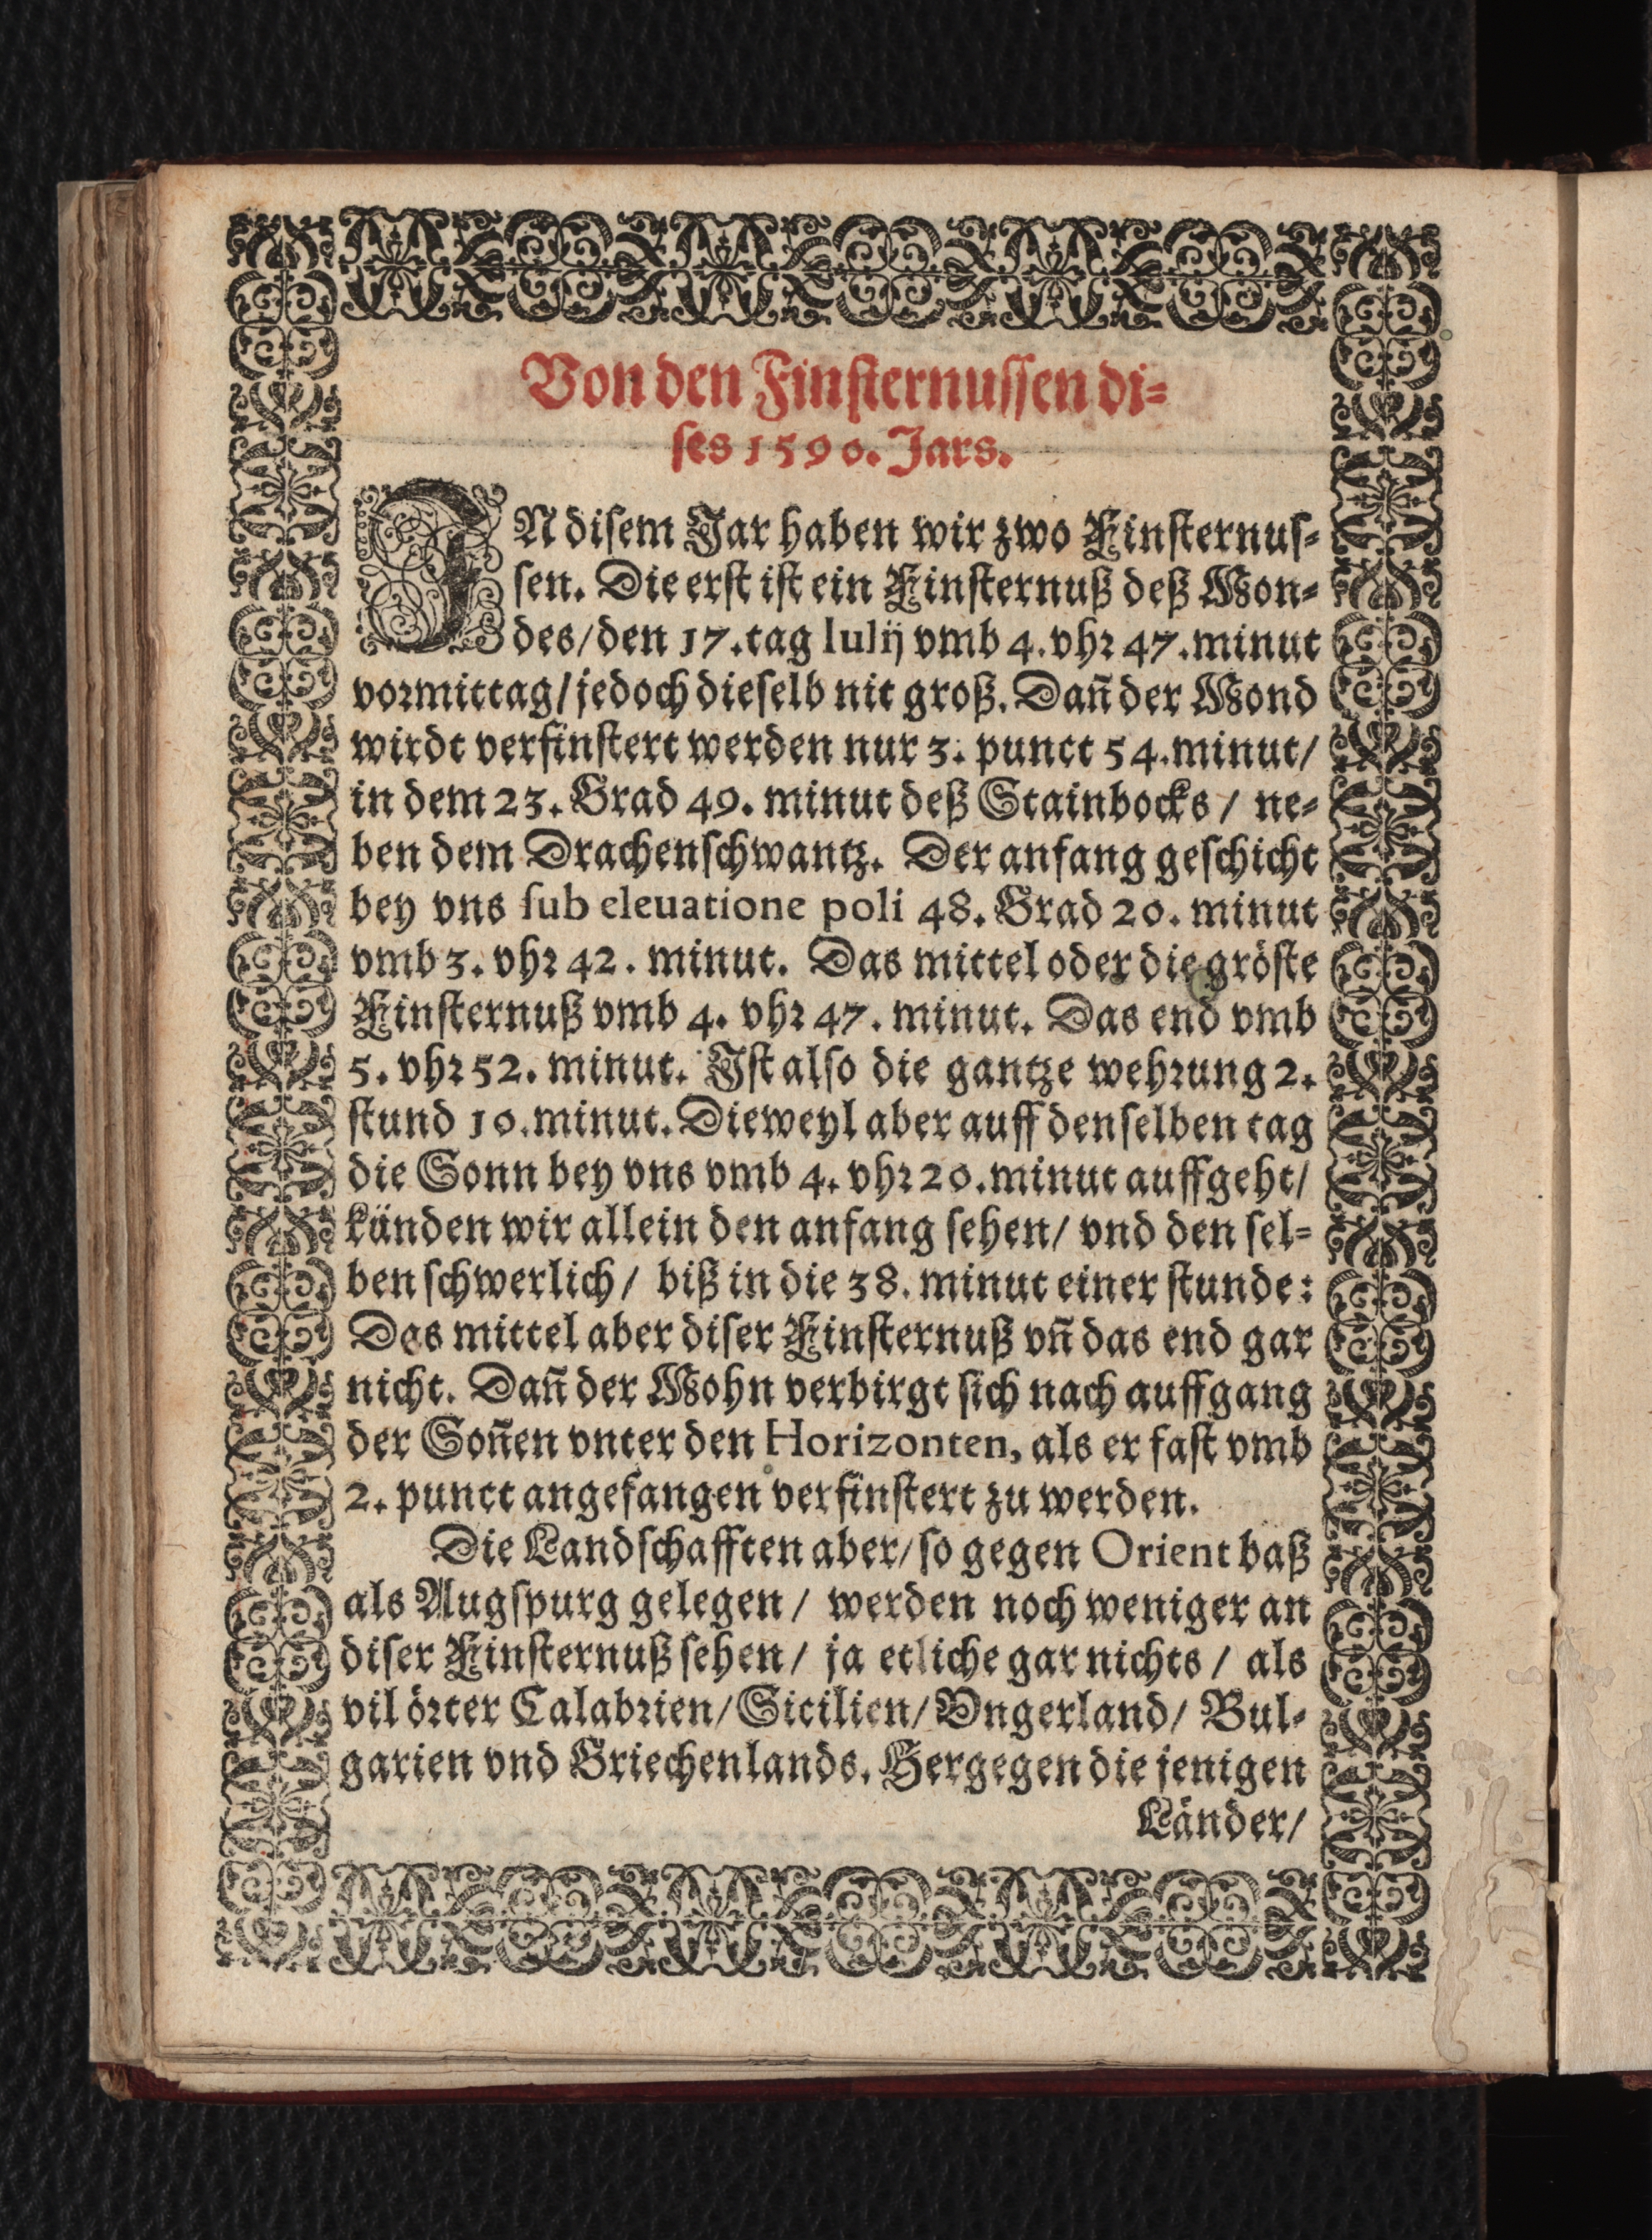 Von den Finsternussen di⸗
ses 1590. Jars.
IN disem Jar haben wir zwo Finsternus⸗
sen. Die erst ist ein Finsternuß deß Mon⸗
des/den 17.tag Iulij vmb 4.vhr 47.minut
vormittag/jedoch dieselb nit groß. Dañ der Mond
wirdt verfinstert werden nur 3. punct 54.minut/
in dem 23. Grad 49. minut deß Stainbocks / ne⸗
ben dem Drachenschwantz. Der anfang geschicht
bey vns sub eleuatione poli 48. Grad 20. minut
vmb 3. vhr 42. minut. Das mittel oder die gröste
Finsternuß vmb 4. vhr 47. minut. Das end vmb
5. vhr 52. minut. Ist also die gantze wehrung 2.
stund 10.minut. Dieweyl aber auff denselben tag
die Sonn bey vns vmb 4. vhr 20.minut auffgeht/
künden wir allein den anfang sehen/ vnd den sel⸗
ben schwerlich/ biß in die 38. minut einer stunde:
Das mittel aber diser Finsternuß vñ das end gar
nicht. Dañ der Mohn verbirgt sich nach auffgang
der Soñen vnter den Horizonten, als er fast vmb
2. punct angefangen verfinstert zu werden.
Die Landschafften aber/so gegen Orient baß
als Augspurg gelegen / werden noch weniger an
diser Finsternuß sehen/ ja etliche gar nichts / als
vil örter Calabrien/Sicilien/Vngerland/ Bul⸗
garien vnd Griechenlands. Hergegen die jenigen
Länder/